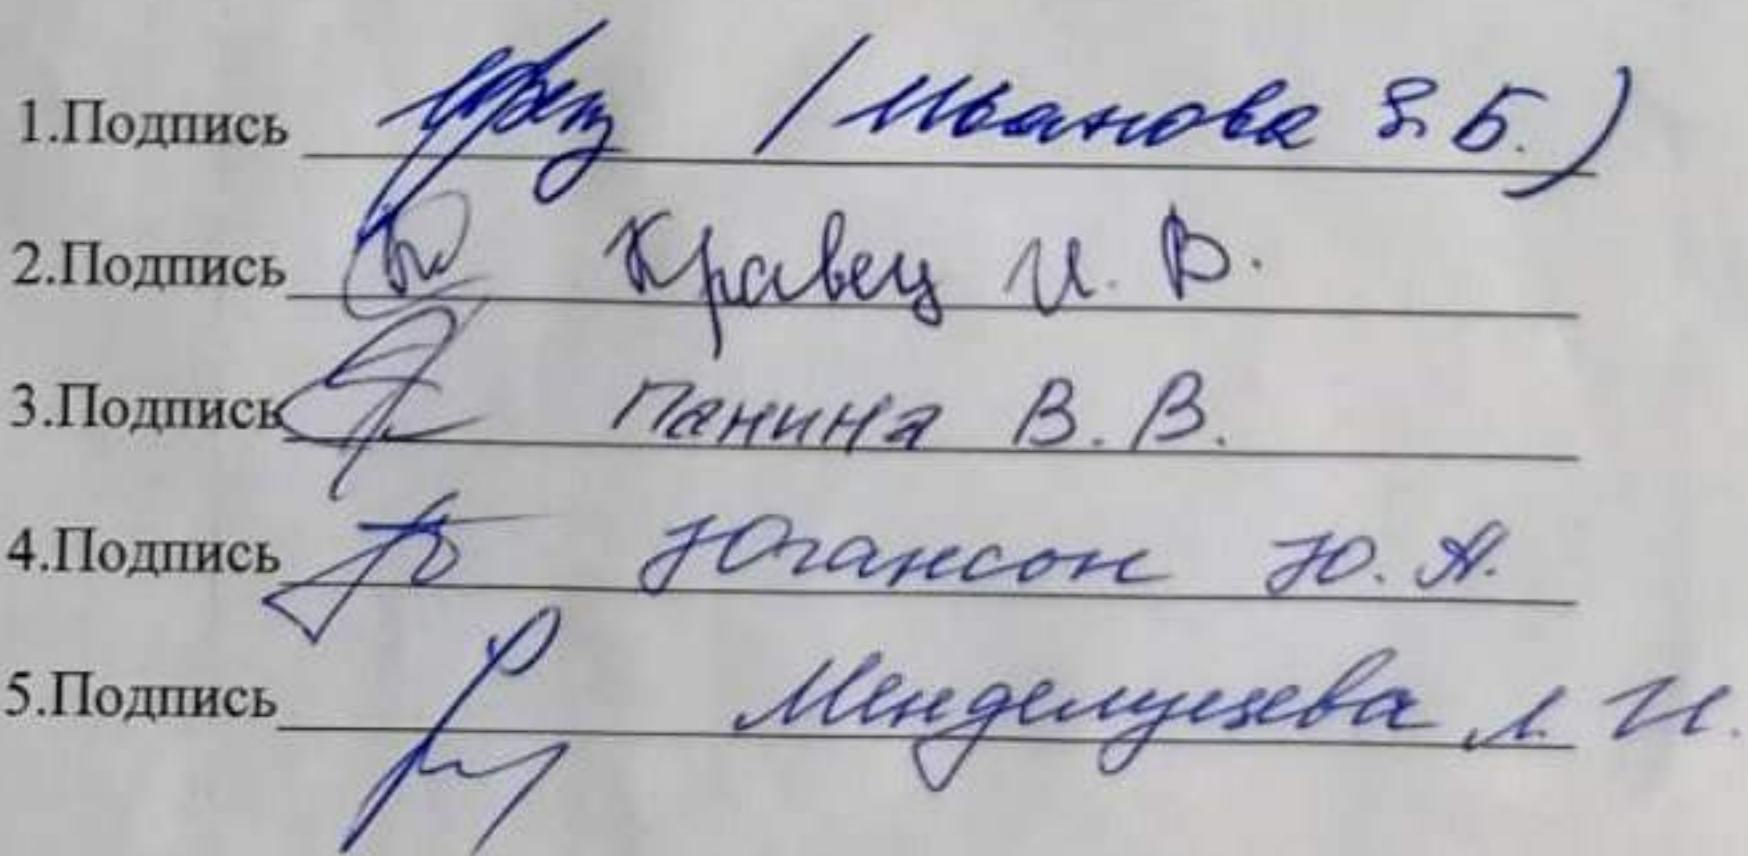 1.Подпись (Иванова З.Б.)
2.Подпись Кравец И. В.
3.Подпись Панина В. В.
4.Подпись Югансон Ю. А.
5.Подпись Л. И.